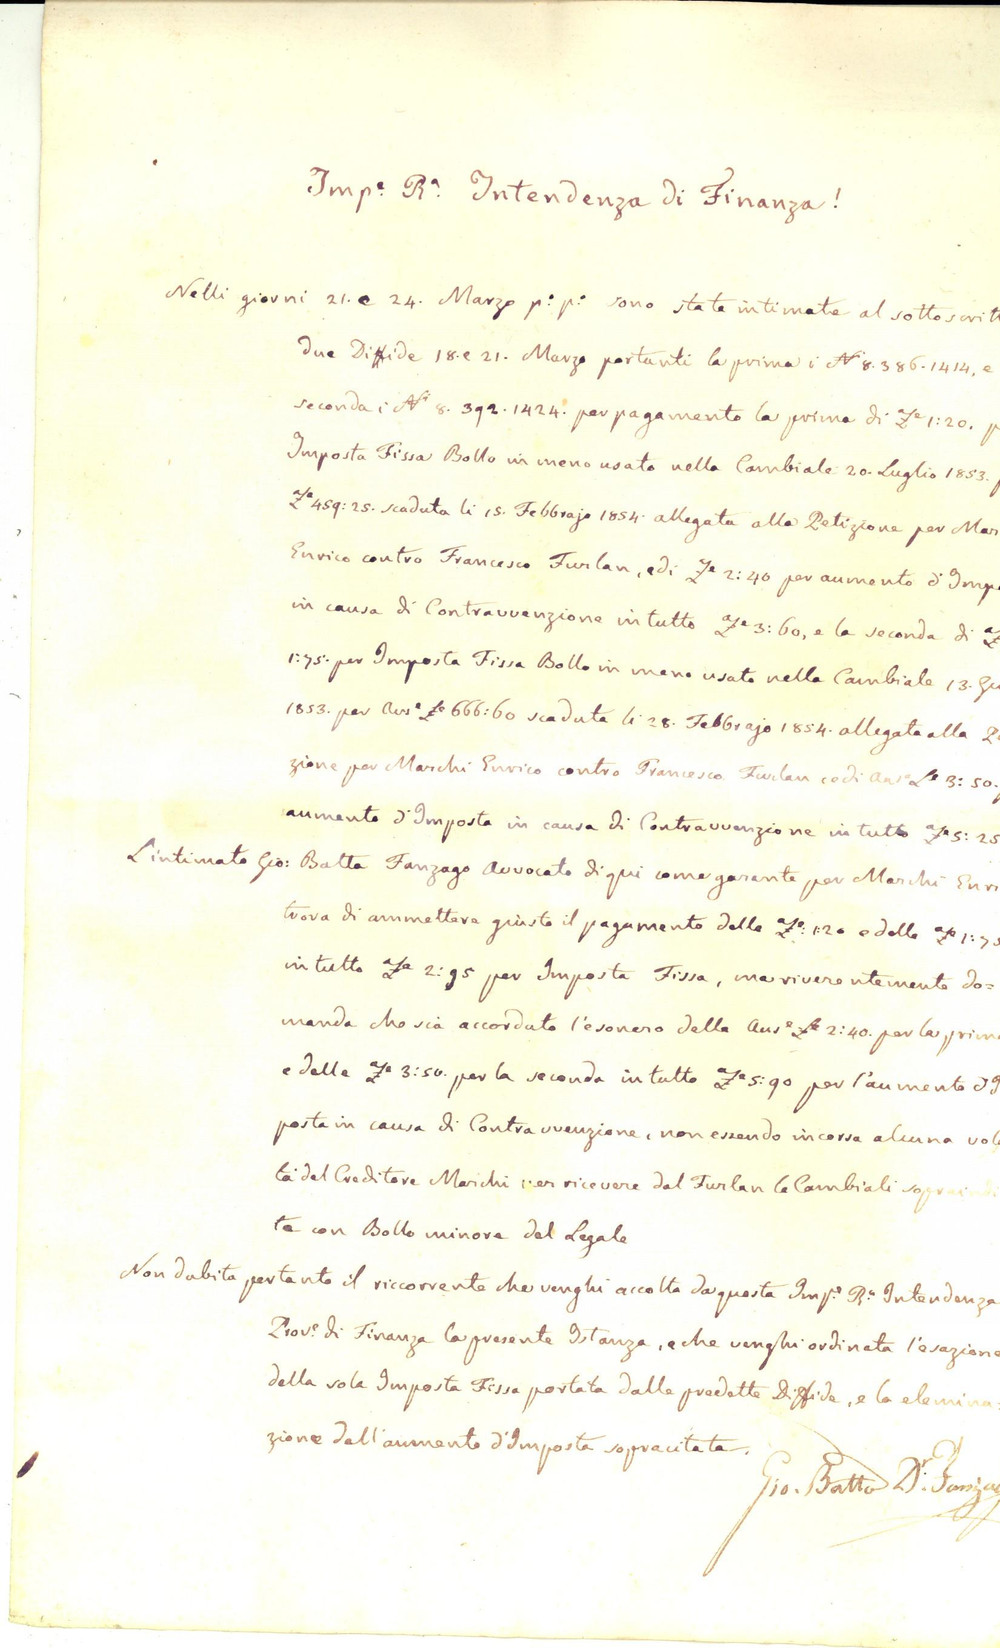 Imp.e R.a Intendenza di Finanza!
Nelli giorni 21. e 24. Marzo p.o p.o sono state intimate al sottoscritt
due Diffide 18. e 21. Marzo portanti la prima i N.i 8.386.1414, e
seconda i N.i 8.392.1424. per pagamento la prima di 1:20. p
Imposta Fissa Bollo in meno usato nella Cambiale 20. Luglio 1853. p
459:25. scaduta li 15. Febbrajo 1854. allegata alla Petizione per Mar
Enrico contro Francesco Furlan, e di 2:40 per aumento d'Impo
in causa di Contravvenzione in tutto 3:60, e la seconda di
1:75. per Imposta Fissa Bollo in meno usato nella Cambiale 13. Gu
1853. per Aus.e L.e 666:60 scaduta li 28. Febbrajo 1854. allegata alla Pe
zione per Marchi Enrico contro Francesco Furlan e di Aus.e L.e 3:50. p
aumento d'Imposta in causa di Contravvenzione in tutto 5:25
L'intimato Gio: Batta Fanzago Avvocato di qui come garante per Marchi Enri
trova di ammettere giusto il pagamento delle 1:20 e delle 1:75
in tutto 2:95 per Imposta Fissa, ma riverentemente do=
manda che sia accordato l'esonero delle Aus.e L.e 2:40. per la prima
e delle 3:50. per la seconda in tutto 5:90 per l'aumento d'I
posta in causa di Contravvenzione, non essendo incorsa alcuna vol
tà del Creditore Marchi per ricevere dal Furlan le Cambiali sopraindi
te con Bollo minore del Legale
Non dubita pertanto il riccorrente che venghi accolta da questa Imp.e R.a Intendenza
Prov.e di Finanza la presente Istanza, e che venghi ordinata l'esazione
della sola Imposta Fissa portata dalle predette Diffide, e la elemina=
zione dell'aumento d'Imposta sopracitata.
Gio. Batta D.r Fanzag